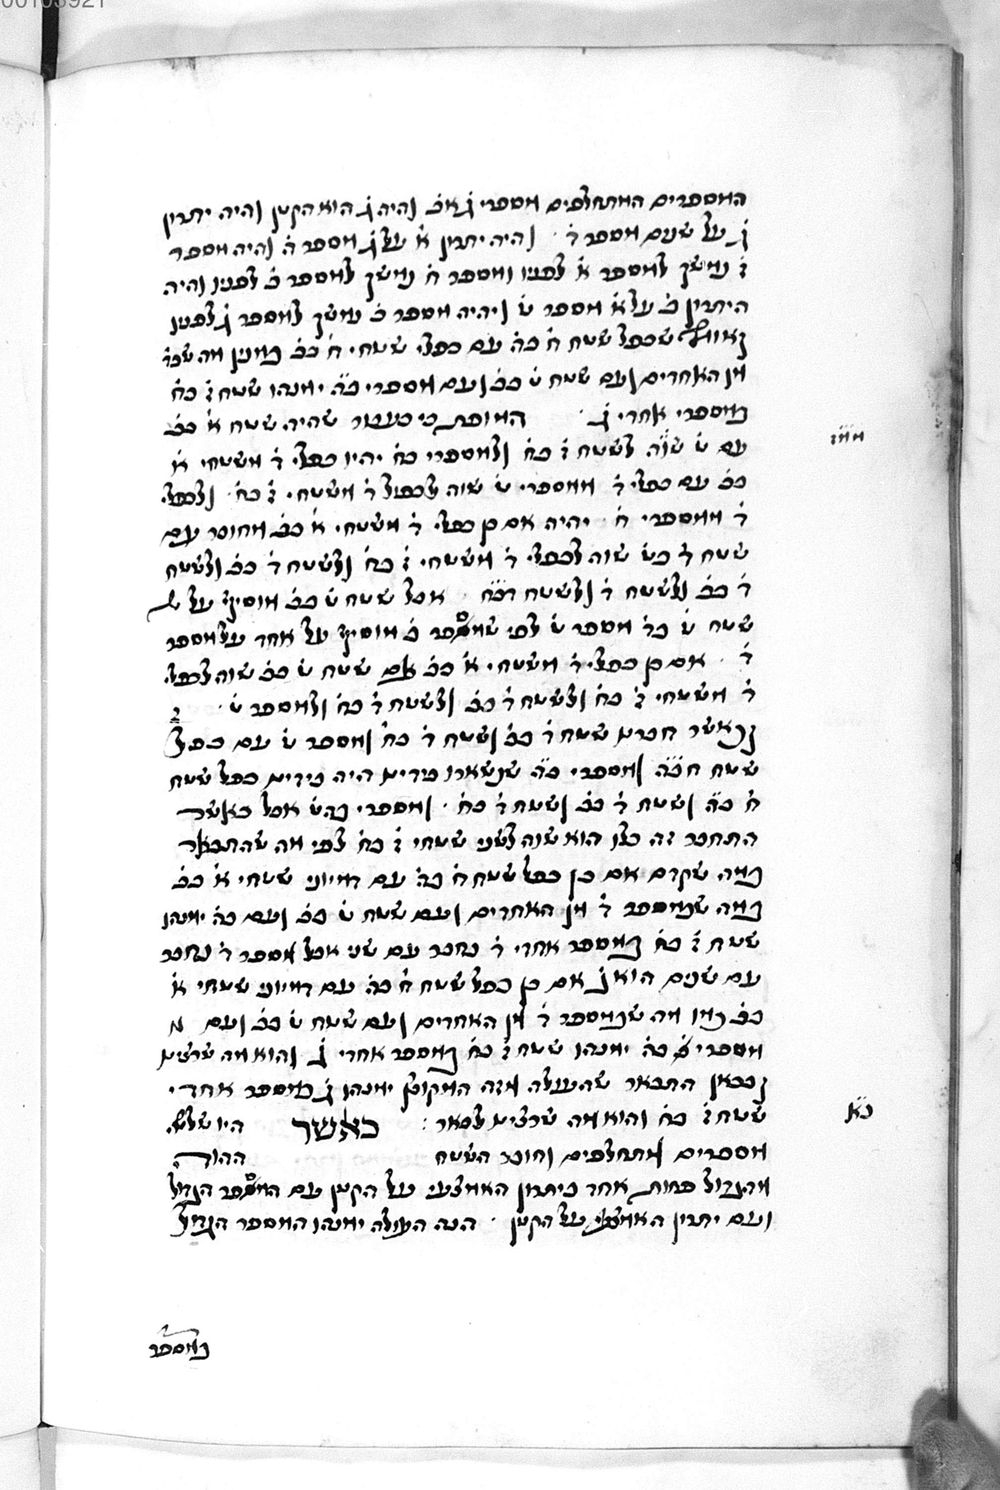 המספרים המתחלפים מספרי ג̇ א̇ב̇ והיה ג̇ הוא הקטן והיה יתרון
ג̇ על שנים מספר ד̇ · והיה יתרון א̇ על ג̇ מספר ה̇ והיה מספר
ז̇ נמשך למספר א̇ לפניו ומספר ח̇ נמשך למספר ב̇ לפניו והיה
היתרון ב̇ על א̇ מספר ט̇ ויהיה מספר כ̇ נמשך למספר ג̇ לפניו
ואומר שכפל שטח ח̇ כ̇ה̇ עם כפלי שטחי ח̇ כ̇ב̇ כמנין מה שבד̇
מן האחדים ועם שטח ט̇ כ̇ב̇ ועם מספרי כ̇ה̇ ימנהו שטח ז̇ כ̇ח̇
במספרי אחדי ג̇ · המופת כי בעבור שהיה שטח א̇ כ̇ב̇
עם ט̇ שוה לשטח ז̇ כ̇ח̇ ולמספרי כ̇ח̇ יהיו כפלי ד̇ משטחי א̇
כ̇ב̇ עם כפלי ד̇ ממספרי ט̇ שוה לכפול ד̇ משטחי ז̇ כ̇ח̇ · ולכפלי
ד̇ ממספרי ח̇ · יהיה אם כן כפלי ד̇ משטחי א̇ כ̇ב̇ מחובר עם
שטח ד̇ כ̇ט̇ שוה לכפלי ד̇ משטחי ז̇ כ̇ח̇ ולשטח ד̇ כ̇ב̇ ולשטח
ד̇ כ̇ב̇ ולשטח ד̇ ולשטח ד̇כ̇ח̇ · אבל שטח ט̇ כ̇ב̇ מוסיף על
שטח ט̇ כ̇ד̇ מספר ט̇ לפי שמספר כ̇ מוסיף על אחד על מספר
ד̇ · אם כן כפלי ד̇ משטחי א̇ כ̇ב̇ עם שטח ט̇ כ̇ב̇ שוה לכפלי
ד̇ משטחי ז̇ כ̇ח̇ ולשטח ד̇ כ̇ב̇ ולשטח ד̇ כ̇ח̇ ולמספר ט̇ ·
וכאשר חברת שטח ד̇ כ̇ב̇ ושטח ד̇ כ̇ח̇ ומספר ט̇ עם כפל
שטח ח̇כ̇ה̇ ומספרי כ̇ה̇ שנשארו בידינו היה בידינו כפל שטח
ח̇ כ̇ה̇ ושטח ד̇ כ̇ב̇ ושטח ד̇ כ̇ח̇ · ומספרי כ̇ה̇ט̇ אבל כאשר
התחבר זה כלו הוא שוה לשני שטחי ז̇ כ̇ח̇ לפי מה שהתבאר
במה שקדם אם כן כפל שטח ח̇ כ̇ה̇ עם דמיוני שטחי א̇ כ̇ב̇
במה שבמספר ד̇ מן האחדים ועם שטח ט̇ כ̇ב̇ ועם כ̇ה̇ ימנהו
שטח ז̇ כ̇ח̇ במספר אחדי ד̇ נחבר עם שני אבל מספר ד̇ נחבר
עם שנים הוא ג̇ אם כן כפל שטח ח̇ כ̇ה̇ עם דמיוני שטחי א̇
כ̇ב̇ כמו מה שבמספר ד̇ מן האחדים ועם שטח ט̇ כ̇ב̇ ועם
מספרי כ̇ה̇ ימנהו שטח ז̇ כ̇ח̇ במספר אחדי ג̇ והוא מה שרצינו
ובכאן התבאר שהעולה מזה המקובץ ימנהו ג̇ במספר אחדי
שטח ז̇ כ̇ח̇ והוא מה שרצינו לבאר : כאשר היו שלשה
מספרים מתחלפים וחובר השטח ההוה
מהגדול פחות אחד ביתרון האמצעי על הקטן עם המספר הגדול
ועם יתרון האמצעי על הקטן · הנה העולה ימנהו המספר הגדול
במספר
כ̇א̇